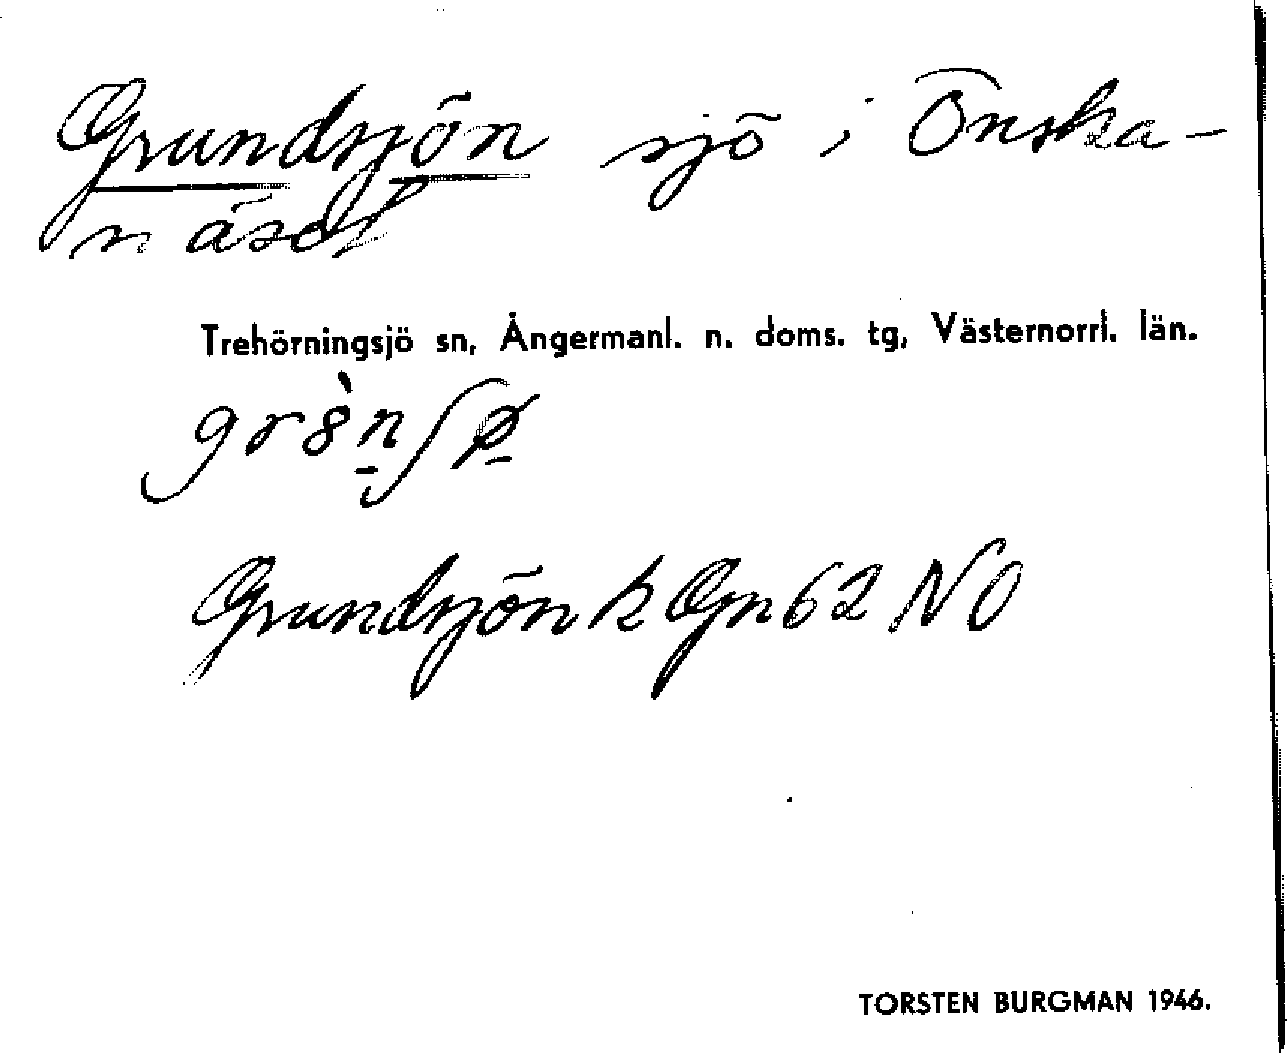 Grundsjön sjö i Önska-
näset
Trehörningsjö sn, Ångermanl. n. doms. tg, Västernorrl. län.
Grundsjön k Gn 62 NO
TORSTEN BURGMAN 1946.